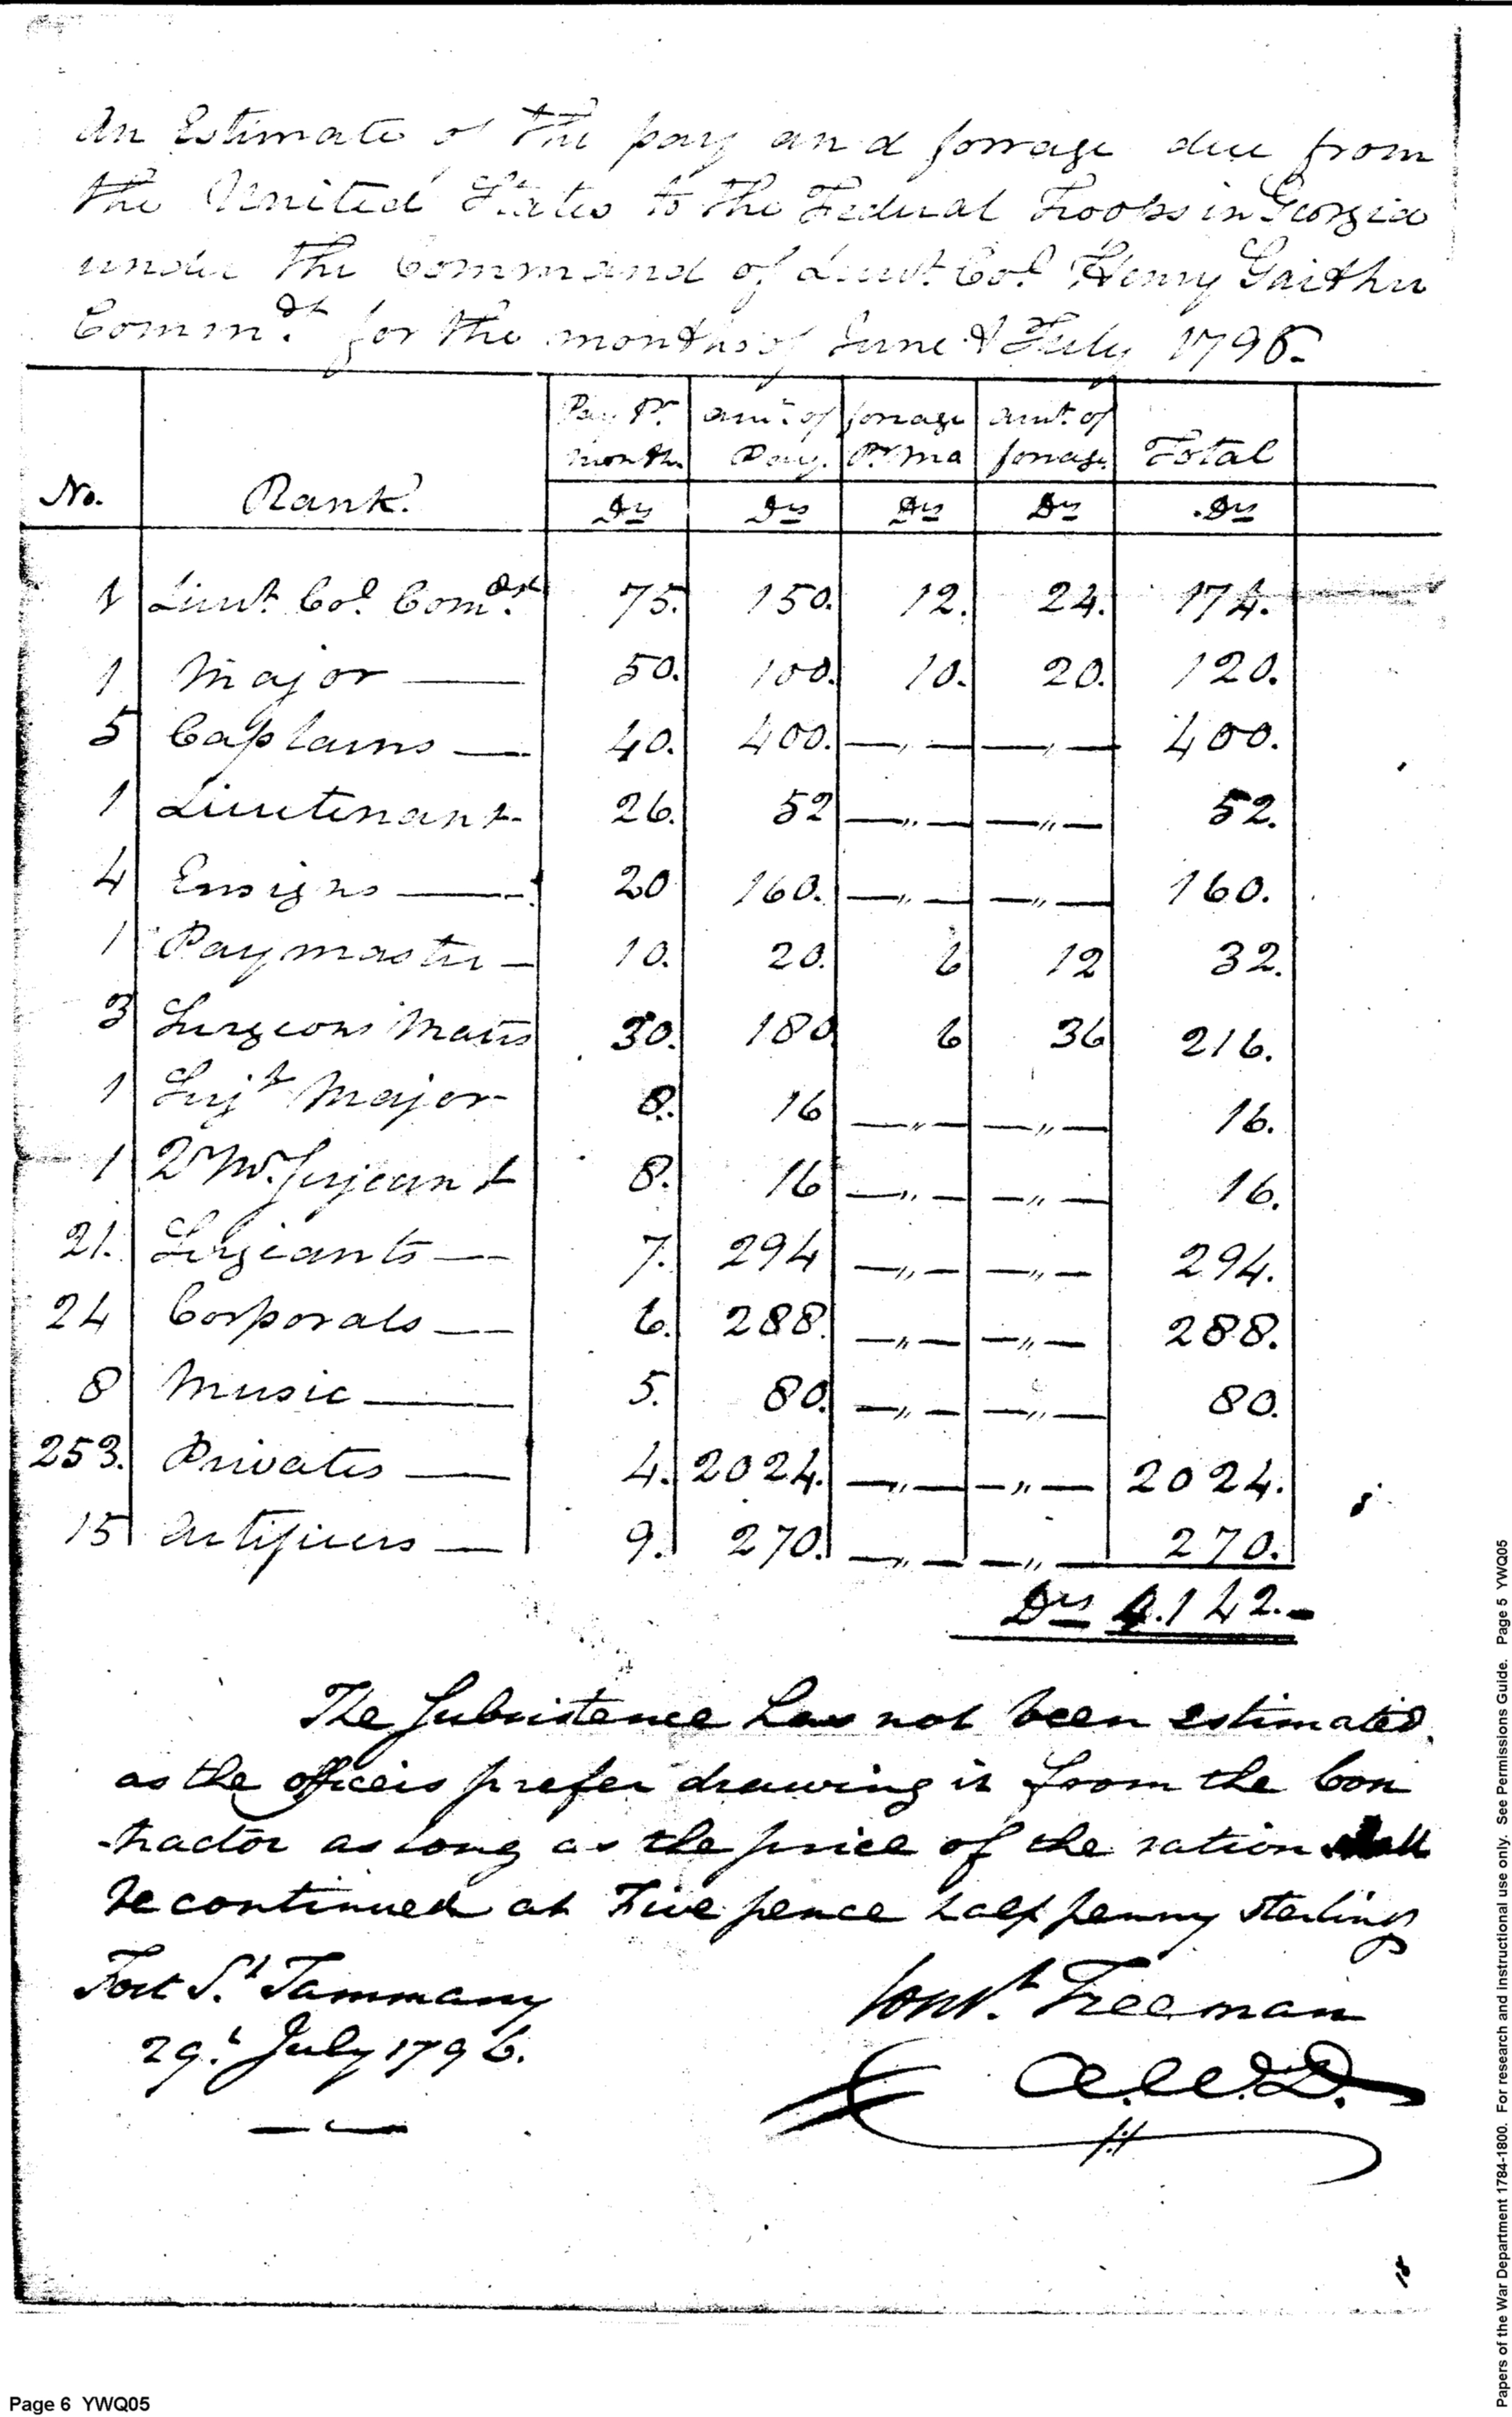 An Estimate of the pay and forrage due from
the United States to the Federal Troops in Georgia
under the Command of Lieut. Col. Henry Gaither
Comm.dt for the months of June & July 1796.
No. Rank. Pay Pr. month. amt. of Pay. forrage Pr. mo amt. of forrage Total
Drs Drs Drs Drs Drs
1 Lieut. Col. Com.dt 75. 150. 12. 24. 174.
1 Major — 50. 100. 10. 20. 120.
5 Captains — 40. 400. —„— —„— 400.
1 Lieutenant 26. 52 —„— —„— 52.
4 Ensigns — 20 160. —„— —„— 160.
1 Paymaster — 10. 20. 6 12 32.
3 Surgeons Mates 30. 180 6 36 216.
1 Serjt Major 8. 16 —„— —„— 16.
1 Qr Mr. Serjeant 8. 16 —„— —„— 16.
21. Serjeants — 7. 294 —„— —„— 294.
24 Corporals — 6. 288. —„— —„— 288.
8 Music — 5. 80. —„— —„— 80.
253. Privates — 4. 2024. —„— —„— 2024.
15 Artificers — 9. 270. —„— —„— 270.
Drs 4.142.-
The Subsistence has not been estimated
as the officers prefer drawing it from the Con
-tractor as long as the price of the ration shall
be continued at Five pence half penny sterling
Fort St. Tammany
29.t July 1796.
Const. Freeman
A.W.D.
Page 6 YWQ05
Papers of the War Department 1784-1800. For research and instructional use only. See Permissions Guide. Page 5 YWQ05